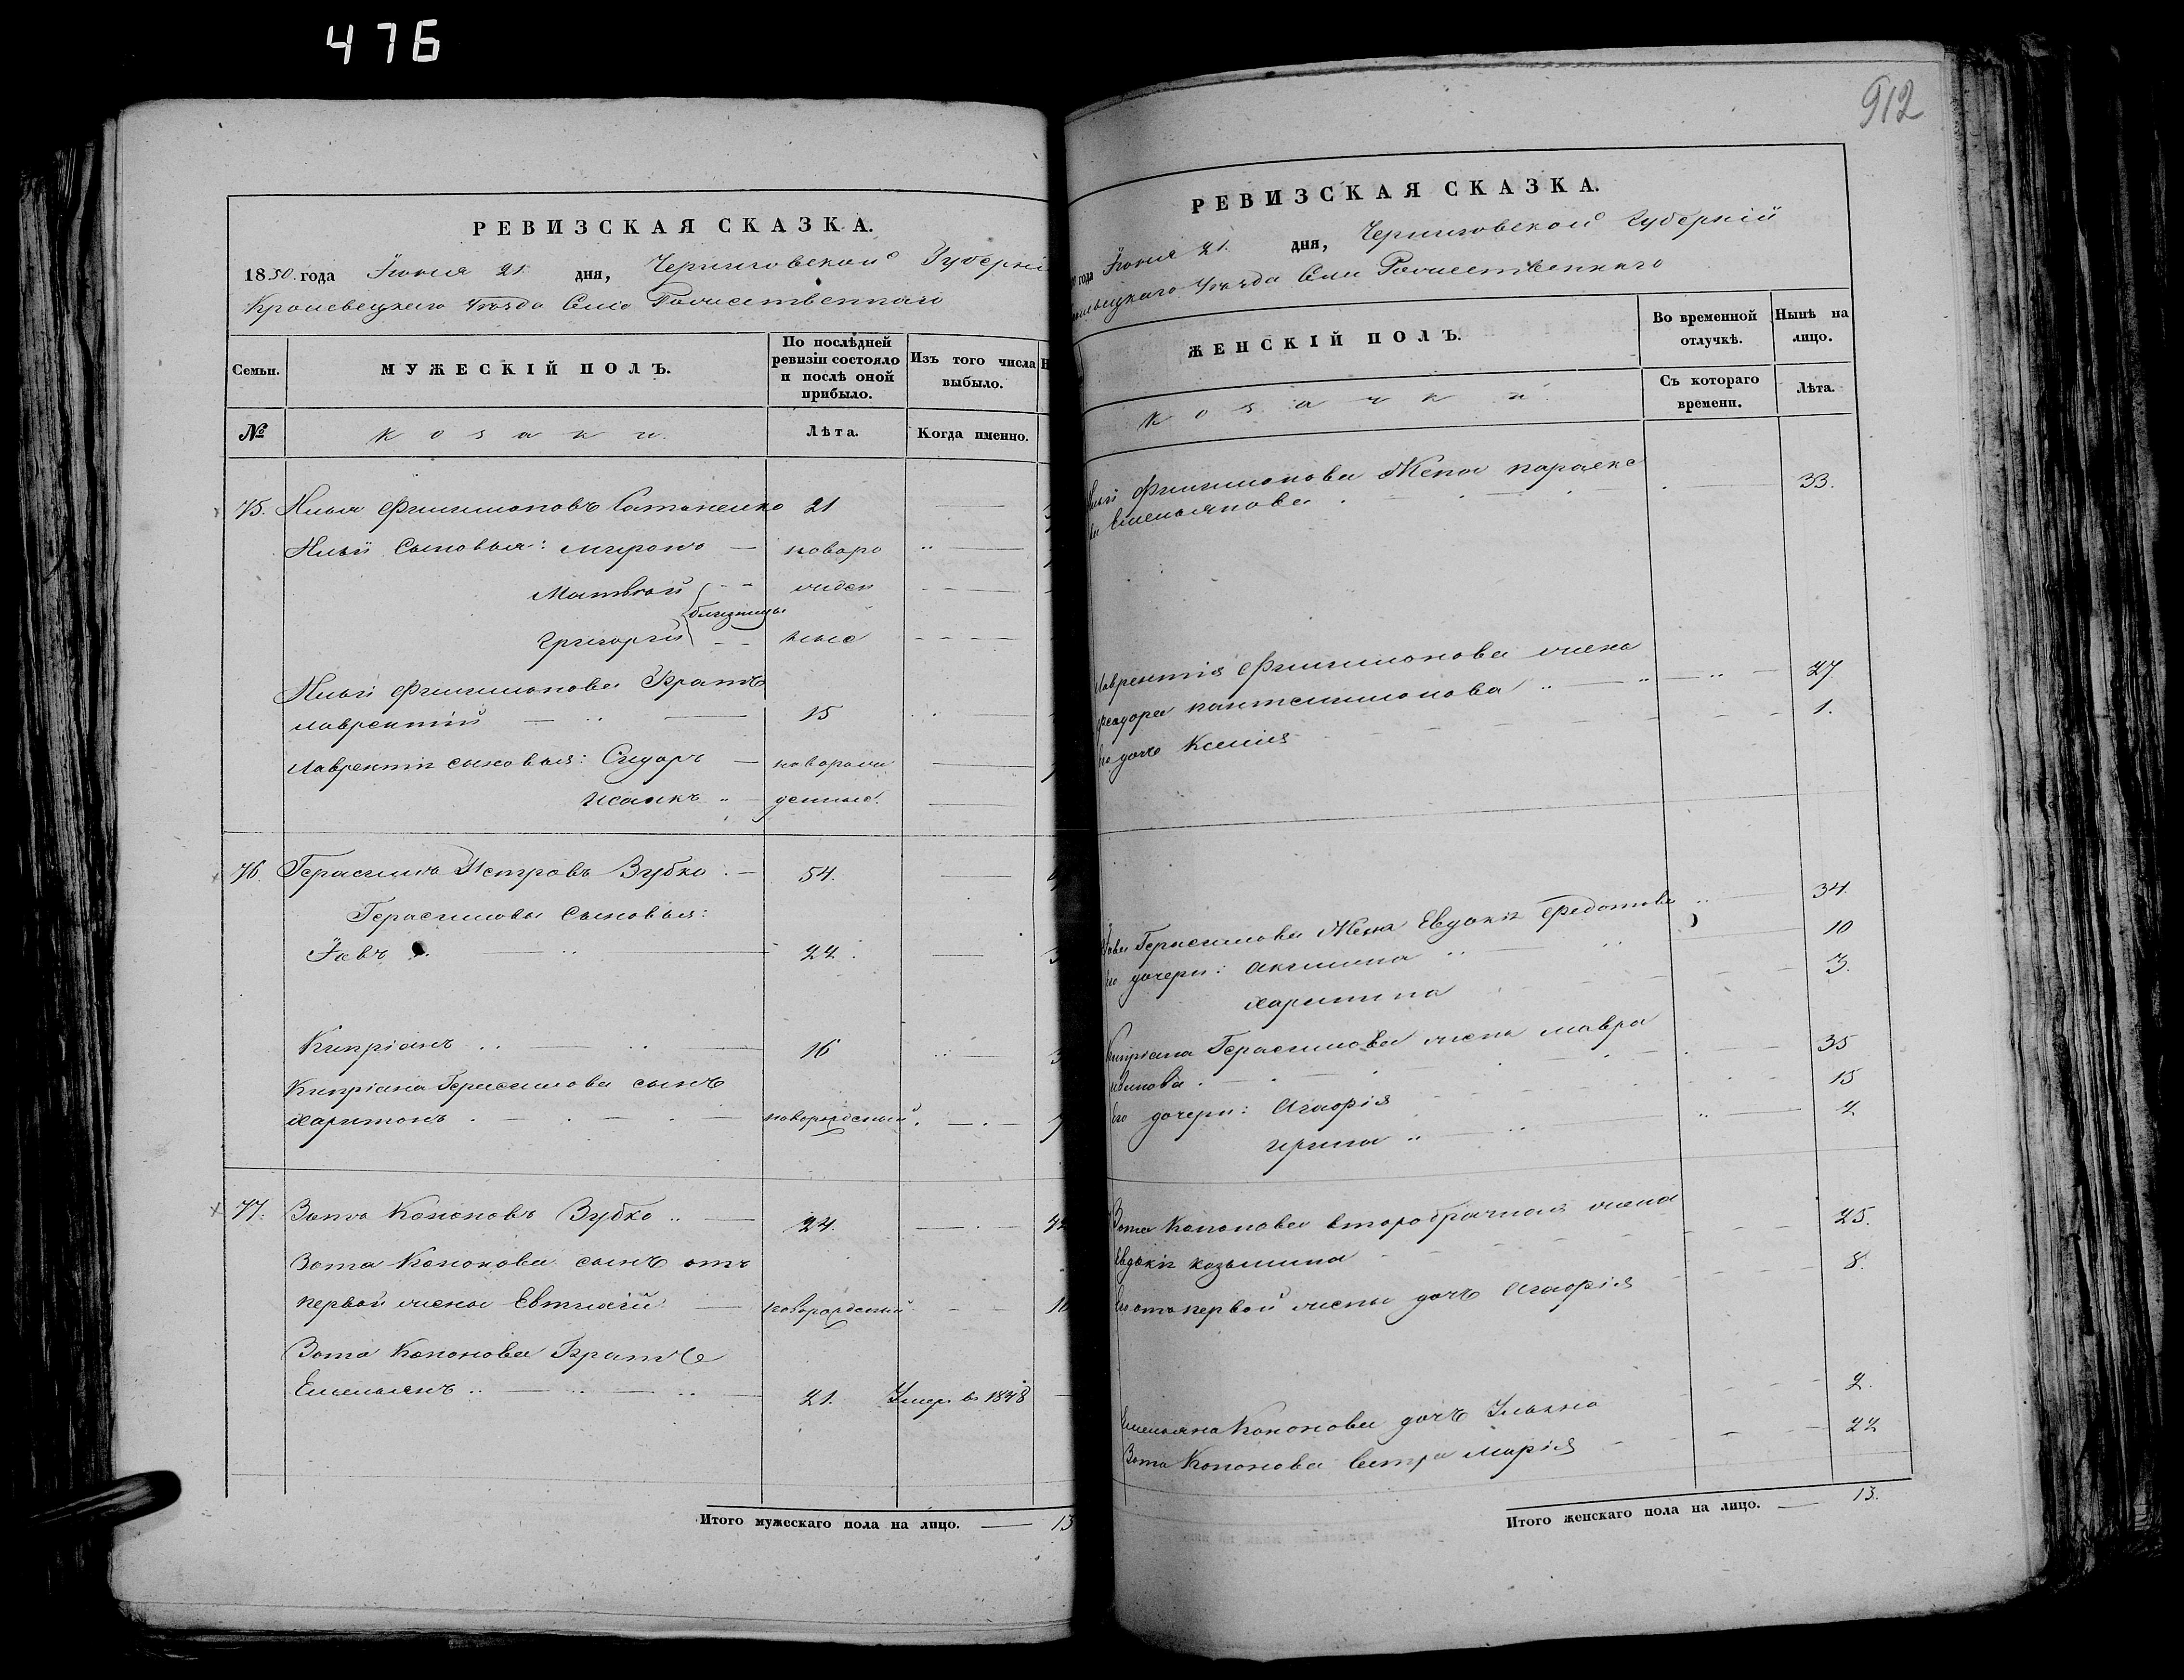 476
РЕВИЗСКАЯ СКАЗКА.
1850. года Іюня 21. дня, Черниговской Губерніи
Кролевецкаго Уѣзда Села Рожественнаго
Семьи.
МУЖЕСКІЙ ПОЛЪ.
По послѣдней ревизіи состояло и послѣ оной прибыло.
Изъ того числа выбыло.
№
Козаки.
Лѣта.
Когда именно.
75. Илья Филимоновъ Сатаненко 21
Ильи Сыновья: миронъ новоро
Матвѣй жден
близнецы
Григорій ные
Ильи Филимонова Братъ
лаврентій 15
Лаврентія сыновья: Сидоръ новорож
Исаакъ денные.
76. Герасимъ Петровъ Зубко 54.
Герасимовы Сыновья:
Іовъ 22.
Кипріанъ 16
Кипріана Герасимова сынъ
харитонъ новорожденный.
77. Зотъ Кононовъ Зубко 24.
Зота Кононова сынъ отъ
первой жены Евтихій новорожденный
Зота Кононова Братъ
Емельянъ 21. Умеръ въ 1848
Итого мужескаго пола на лицо. 13
912
РЕВИЗСКАЯ СКАЗКА.
года Іюня 21. дня, Черниговской Губерніи
Уѣзда Села Рожественнаго
ЖЕНСКІЙ ПОЛЪ.
Во временной отлучкѣ.
Нынѣ на лицо.
Козачки.
Съ котораго времени.
Лѣта.
Ильи Филимонова Жена параске
ва Емельянова 33.
Лаврентія Филимонова жена
феодора пантелимонова 27.
его дочь Ксенія 1.
Іова Герасимова Жена Евдокія Федотова 34.
его дочери: Акилина 10
харитина 3.
Кипріана Герасимова жена мавра
35
Его дочери: Агафія 15
ирина 4
Зота Кононова второбрачная жена
Евдокія козьмина 25.
Его отъ первой жены дочь Агафія 8.
Емельяна Кононова дочь Ульяна 2.
Зота Кононова Сестра Марія 22
Итого женскаго пола на лицо. 13.